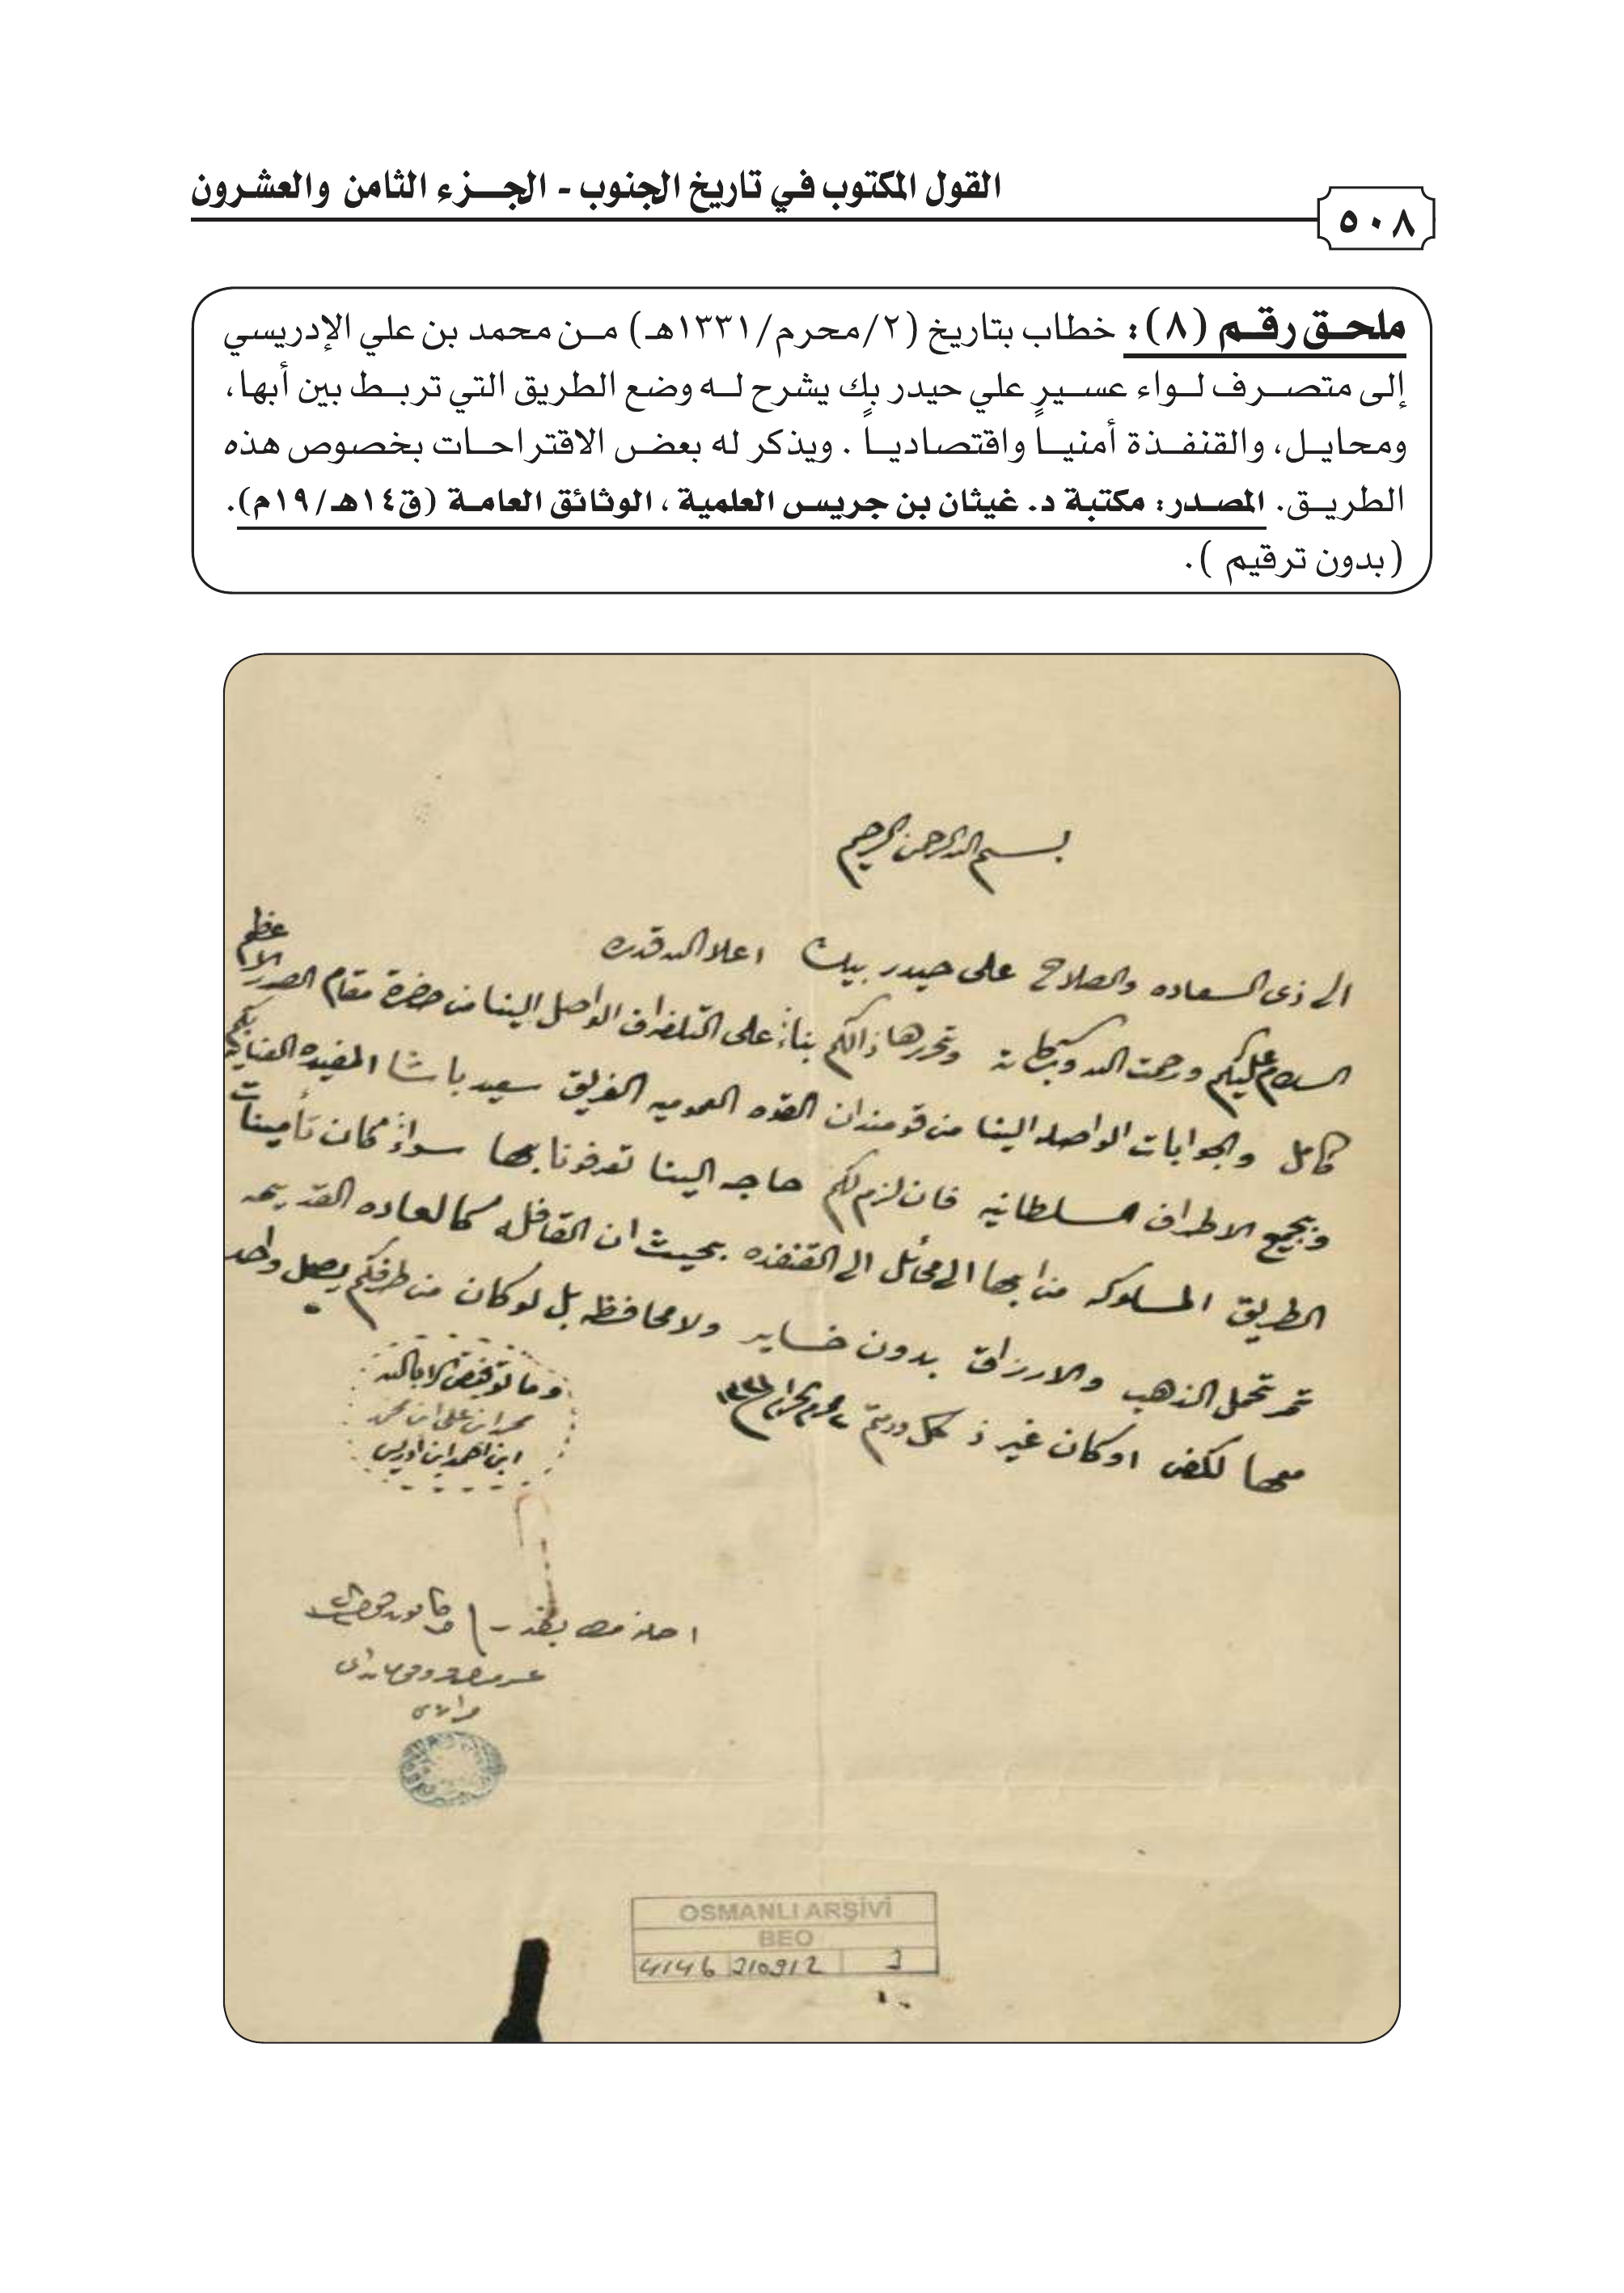 القول المكتوب في تاريخ الجنوب - الجزء الثامن والعشرون
٥٠٨
ملحق رقم (٨): خطاب بتاريخ (٢/محرم/١٣٣١هـ) من محمد بن علي الإدريسي
إلى متصرف لواء عسير علي حيدر بك يشرح له وضع الطريق التي تربط بين أبها،
ومحايل، والقنفذة أمنياً واقتصادياً . ويذكر له بعض الاقتراحات بخصوص هذه
الطريق. المصدر: مكتبة د. غيثان بن جريس العلمية ، الوثائق العامة (ق١٤هـ/١٩م).
(بدون ترقيم ).
بسم الله الرحمن الرحيم
الى ذى السعاده والصلاح على حيدر بيك اعلا الله قدره
السلام عليكم ورحمت الله وبركاته وتحررها ذالكم بناءً على التلغراف الواصل الينا من حضرة مقام الصدر الاعظم
كامل والجوابات الواصله الينا من قومندان القوه العموميه الفريق سعيد باشا المفيده
وبجميع الاطراف السلطانيه فان لزم لكم حاجه الينا تعرفونا بها سواءً كان تأمينات
الطريق المسلوكه من ابها الى محائل الى القنفذه بحيث ان القافله كالعاده القديمه
تمر تحمل الذهب والارزاق بدون خساير ولا محافظه بل لو كان من طرفكم يصل واحد
معها لكفى او كان غير ذ لك ودمتم ٢ محرم الحرام ١٣٣١
وما توفيقى الا بالله
محمد ابن على ابن محمد
ابن احمد ابن ادريس
OSMANLI ARŞİVİ
BEO
4146 310912 3